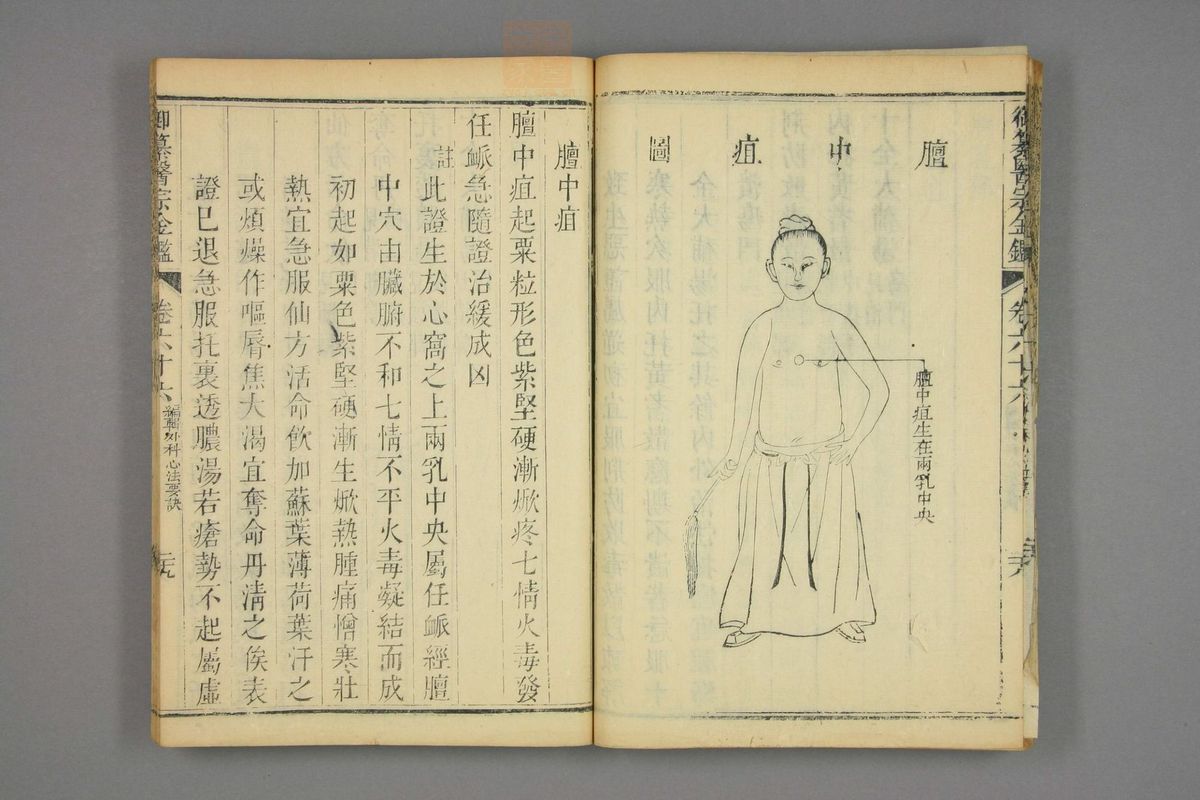 御纂醫宗金鑑 卷六十六
膻中疽圖
膻中疽生在兩乳中央
膻中疽
膻中疽起粟粒形色紫堅硬漸焮疼七情火毒發
任脈急隨證治緩成凶
註此證生於心窩之上兩乳中央屬任脈經膻
中穴由臟腑不和七情不平火毒凝結而成
初起如粟色紫堅硬漸生焮熱腫痛憎寒壯
熱宜急服仙方活命飲加蘇葉薄荷葉汗之
或煩燥作嘔脣焦大渴宜奪命丹淸之俟表
證已退急服托裏透膿湯若瘡勢不起屬虛
御纂醫宗金鑑 卷六十六 編輯外科心法要訣 三九